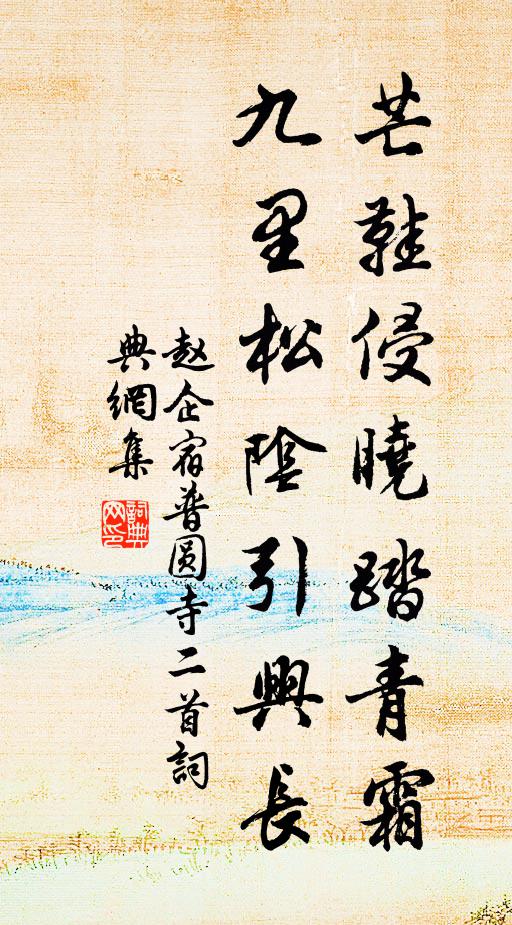 芒鞋侵曉踏青霜
九里松陰引興長
赵企宿普圆寺二首詞
典網集
詞典
网印